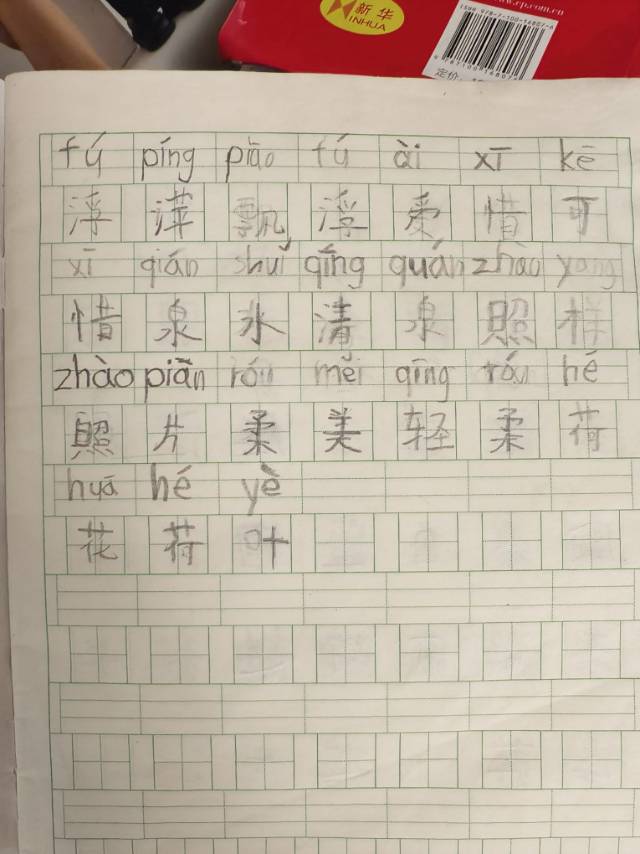 新华
XINHUA
www.cp.com.cn
ISBN 978-7-100-16807-6
定价
fú píng piāo fú ài xī kē
浮 萍 飘 浮 爱 惜 可
xī qián shuǐ qīng quán zhào yang
惜 泉 水 清 泉 照 样
zhào piān róu měi qīng róu hé
照 片 柔 美 轻 柔 荷
huā hé yè
花 荷 叶